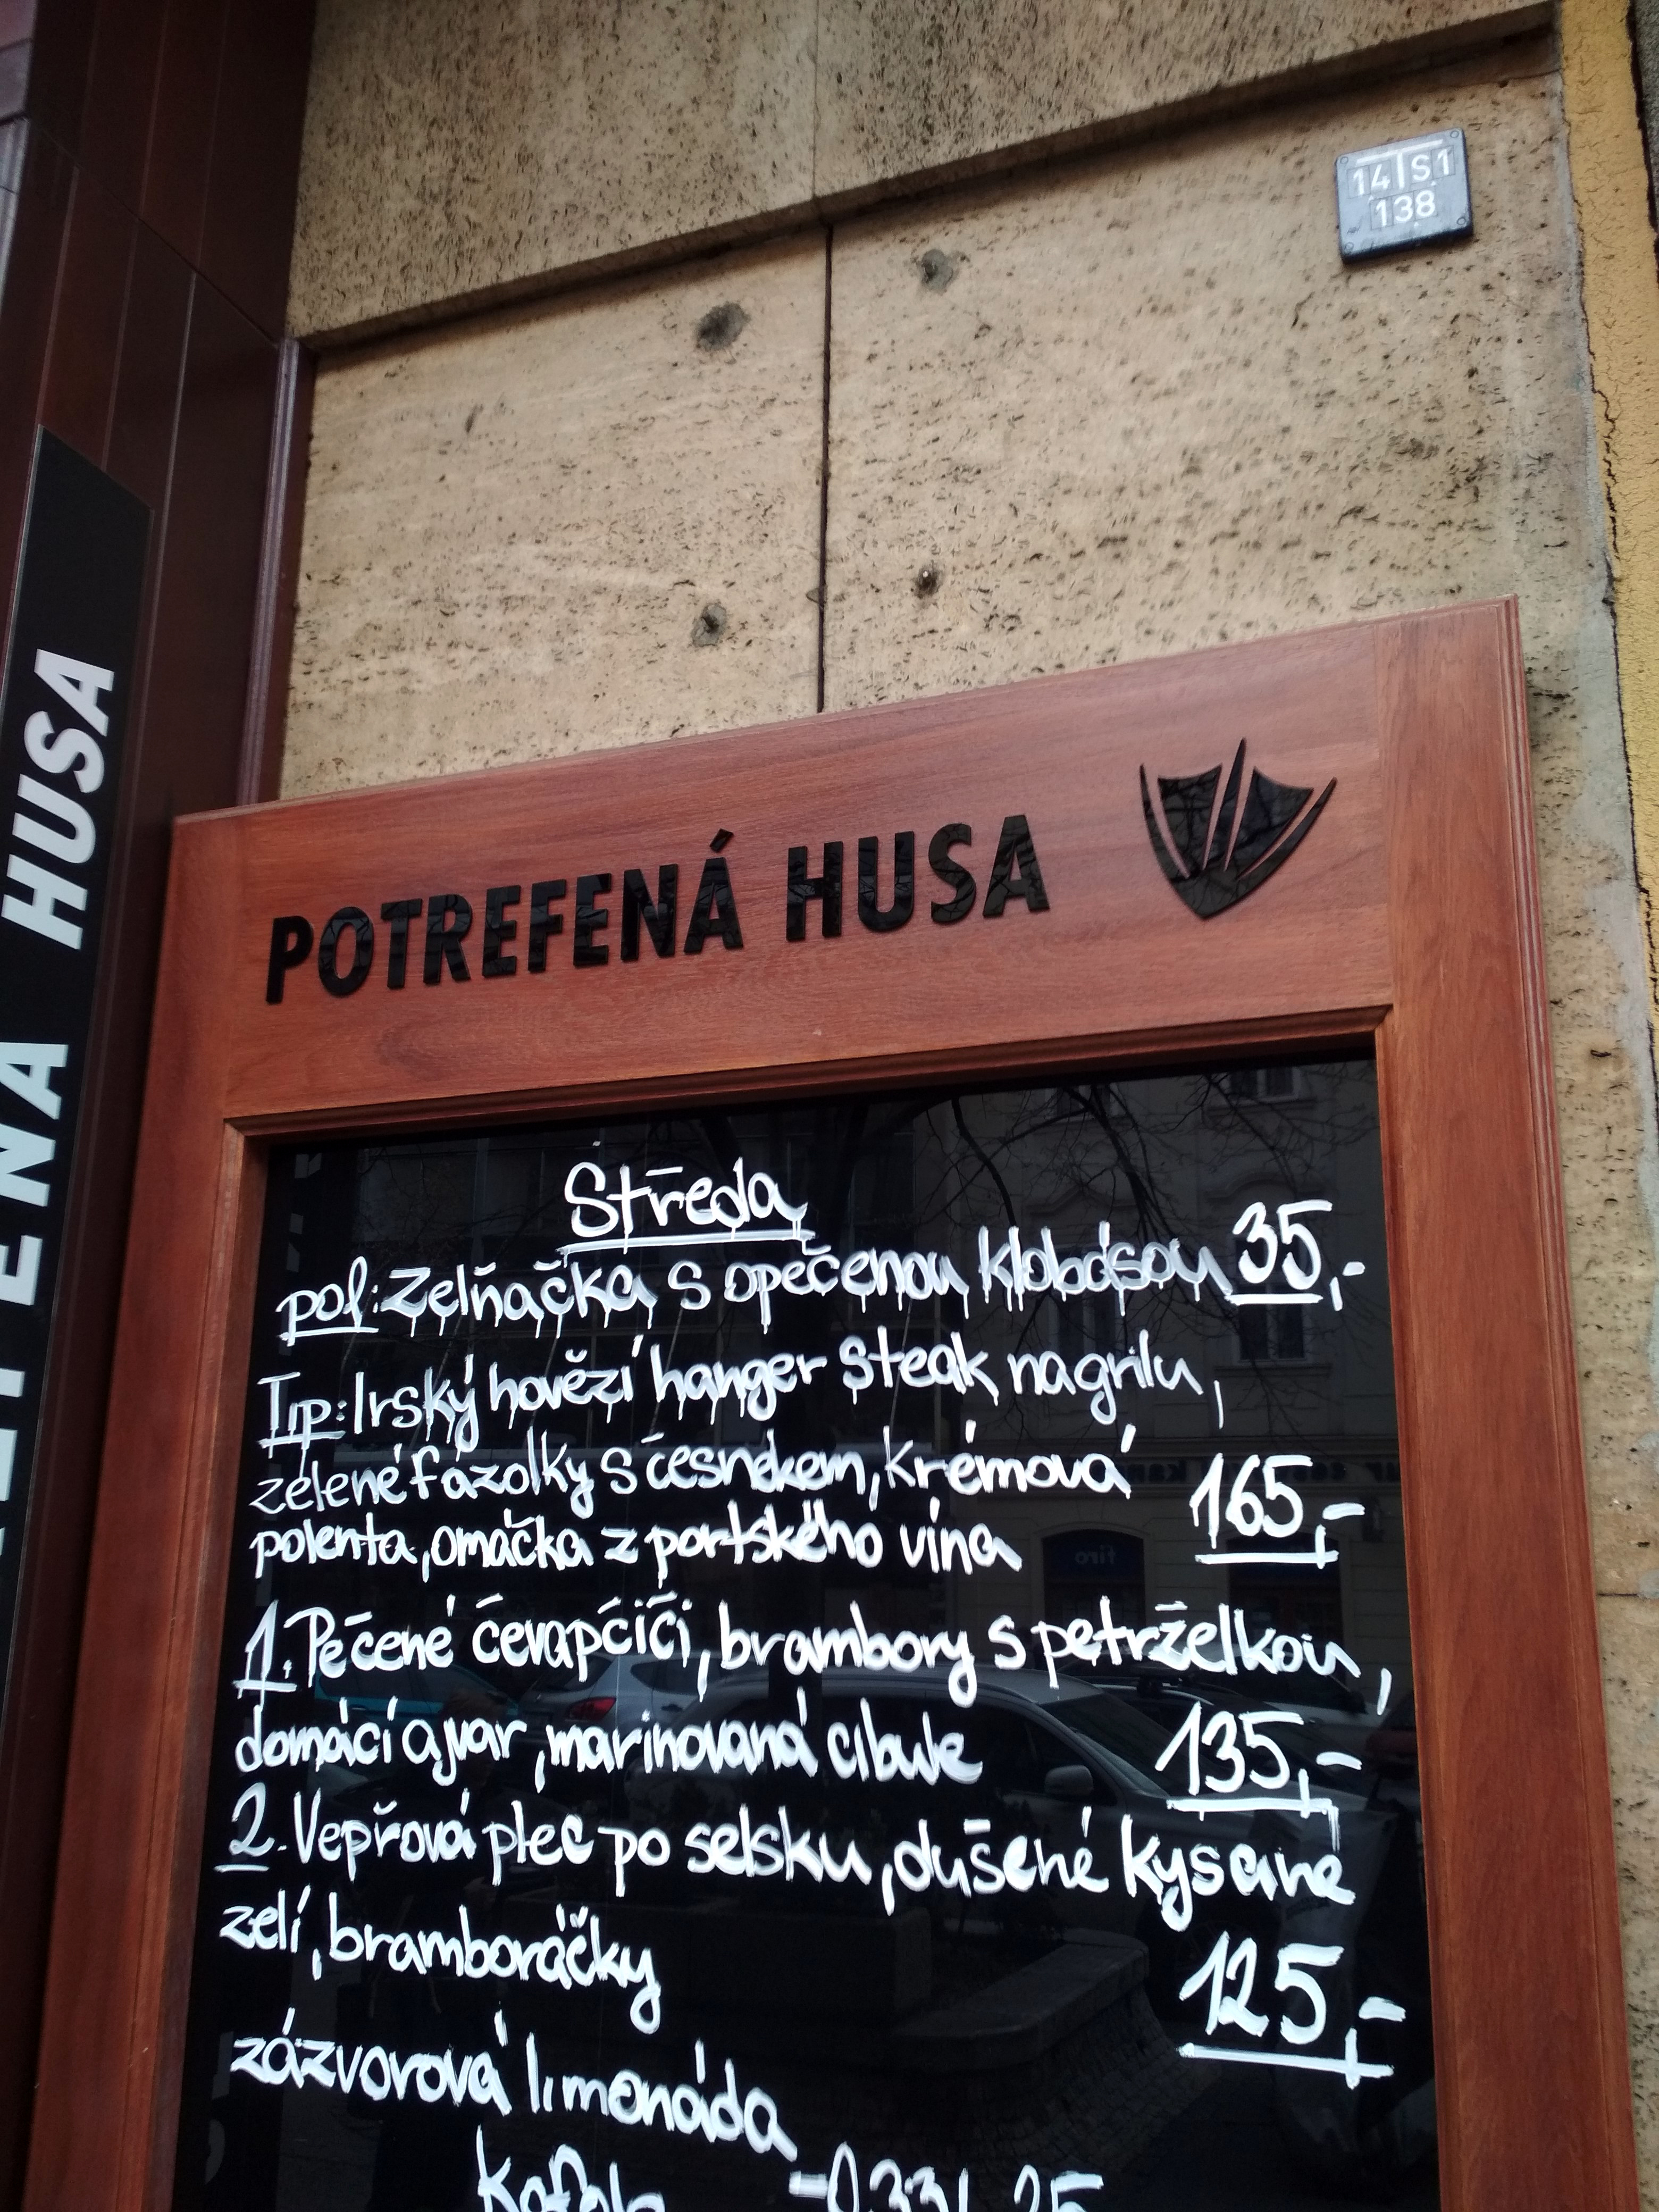 14 S1
138
HUSA
POTREFENÁ HUSA
Středa
pol: Zelňačka s opečenou klobásou 35,-
Tip: Irský hovězí hanger steak na grilu,
zelené fazolky s česnekem, krémová
polenta, omáčka z portského vína 165,-
1. Pečené čevapčiči, brambory s petrželkou,
domácí ajvar, marinovaná cibule 135,-
2. Vepřová plec po selsku, dušené kysané
zelí, bramboráčky 125,-
zázvorová limonáda
Kofola - 0,33l 25